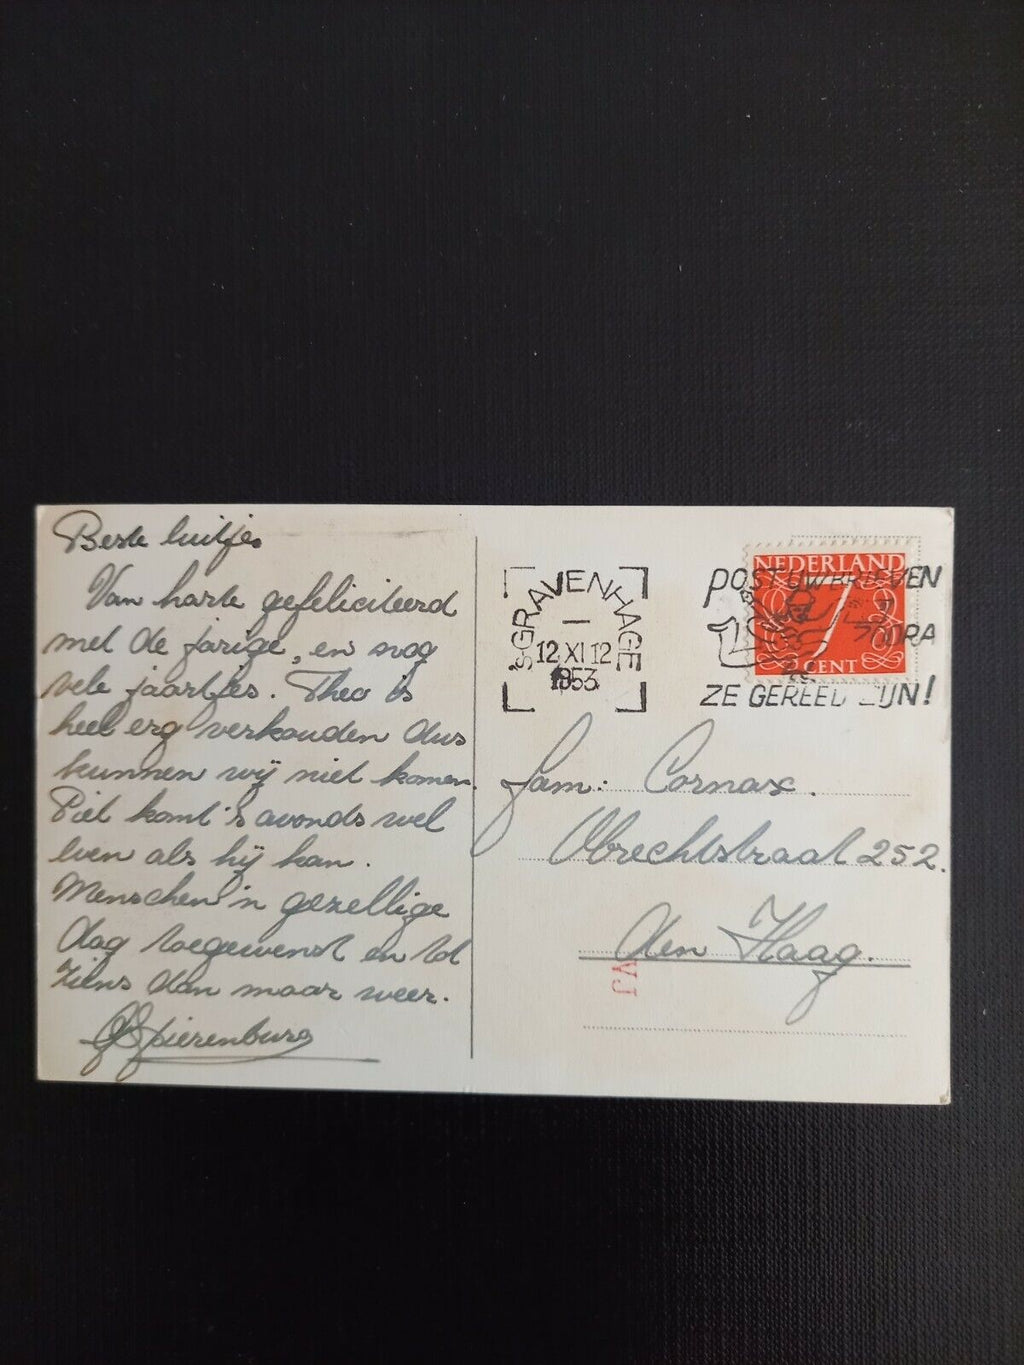 Beste luitjes
Van harte gefeliciteerd
met de jarige, en nog
vele jaartjes. Theo is
heel erg verkouden dus
kunnen wij niet komen.
Piet komt 's avonds wel
even als hij kan.
Menschen 'n gezellige
dag toegewenst en tot
ziens dan maar weer.
Spierenburg
'S GRAVENHAGE
12 XI 12
1953
POST UW BRIEVEN
ZODRA
ZE GEREED ZIJN!
NEDERLAND
CENT
fam: Cornax.
Obrechtstraat 252.
den Haag.